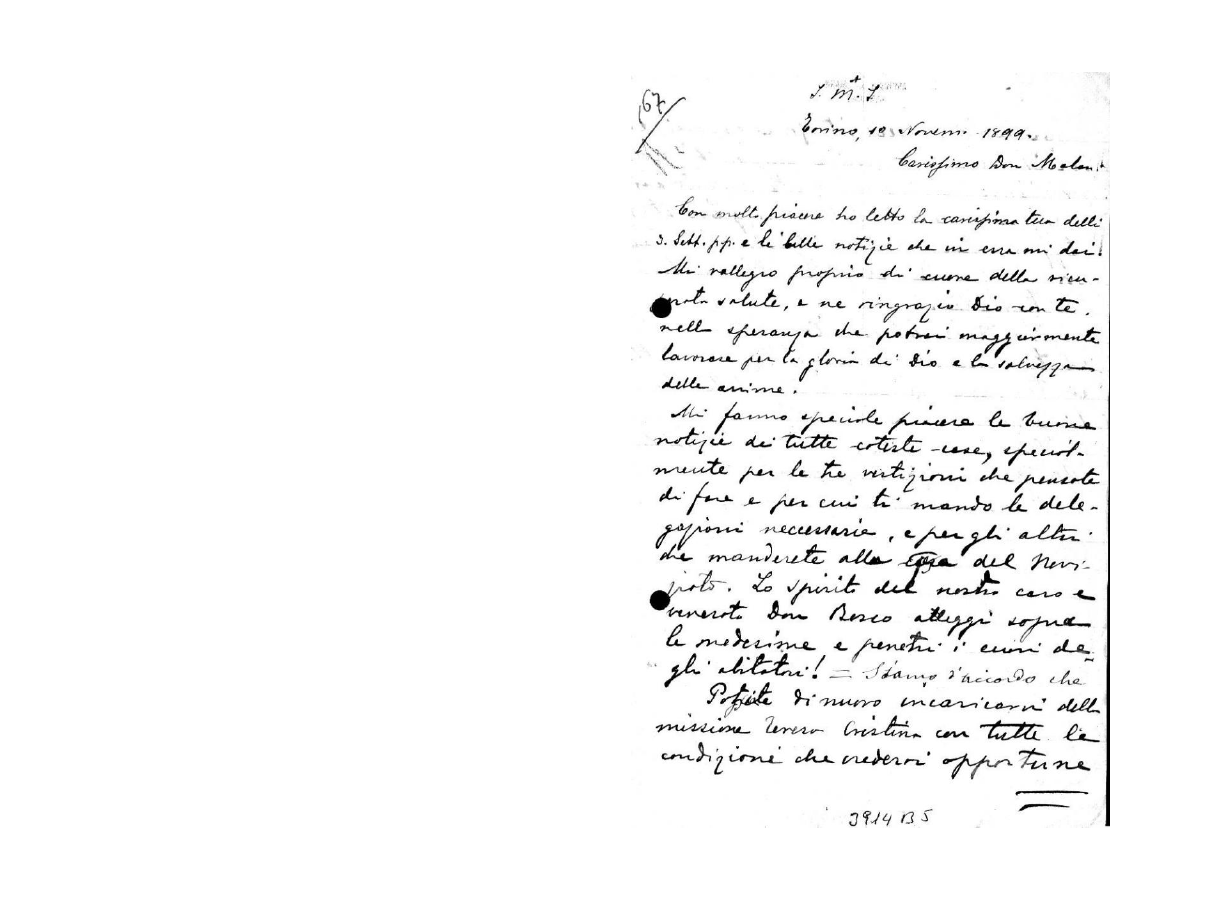 67
J. M. J.
Torino, 10 Novem. 1899.
Carissimo Don Malan!
Con molto piacere ho letto la carissima tua delli
3. Sett. pp. e le belle notizie che in essa mi dai!
Mi rallegro proprio di cuore della ricu-
perata salute, e ne ringrazio Dio con te,
nella speranza che potrai maggiormente
lavorare per la gloria di Dio e la salvezza
delle anime.
Mi fanno speciale piacere le buone
notizie di tutte coteste case, special-
mente per le tre vestizioni che pensate
di fare e per cui ti mando le dele-
gazioni neccessarie, e per gli altri
che manderete alla casa del Novi-
ziato. Lo spirito del nostro caro e
venerato Don Bosco alleggi sopra
le medesime e penetri i cuori de-
gli abitatori! = Siamo d'accordo che
Potete di nuovo incaricarvi della
missione Teresa Cristina con tutte le
condizioni che crederai opportune
3914 B 5